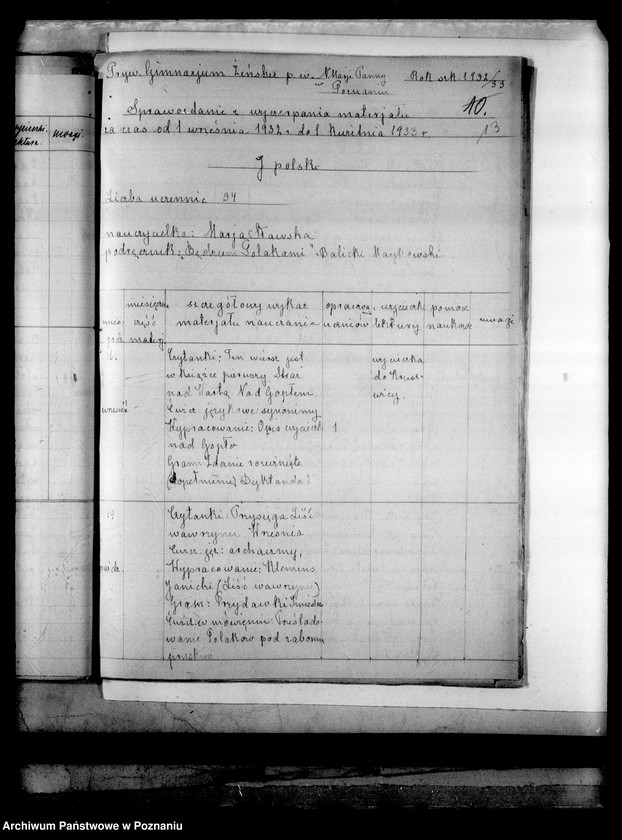 uwagi
Pryw. Gimnazjum Żeńskie p. w. N. Marji Panny Rok szk. 1932/33
w Poznaniu
10.
Sprawozdanie z wyczerpania materjału
za czas od 1 września 1932 r. do 1 kwietnia 1933 r. 13
J. polski
Liczba uczennic 34
nauczycielka: Marja Sławska
podręcznik: "Będziem Polakami" Balicki Maykowski
miesięczna część materj.
szczegółowy wykaz materjału nauczania
opracow. uczniów
wycieczki lektury
pomoce naukowe
uwagi
wrzesień
Czytanki: Ten wiersz jest
w książce pierwszy Straż
nad Wartą. Nad Gopłem
Ćwicz. językowe: synonimy
Wypracowanie: Opis wycieczki
nad Gopło
Gram: Zdanie rozwinięte
(dopełnienie) Dyktanda 2
1
wycieczka
do Krusz-
wicy.
19
Czytanki: Przysięga Liść
wawrzynu. Września
Ćwicz. jęz: archaizmy,
Wypracowanie: Klemens
Janicki (Liść wawrzynu)
Gram: Przydawki
Ćwicz. w mówieniu: Prześlado-
wanie Polaków pod zaborem
pruskim
Archiwum Państwowe w Poznaniu